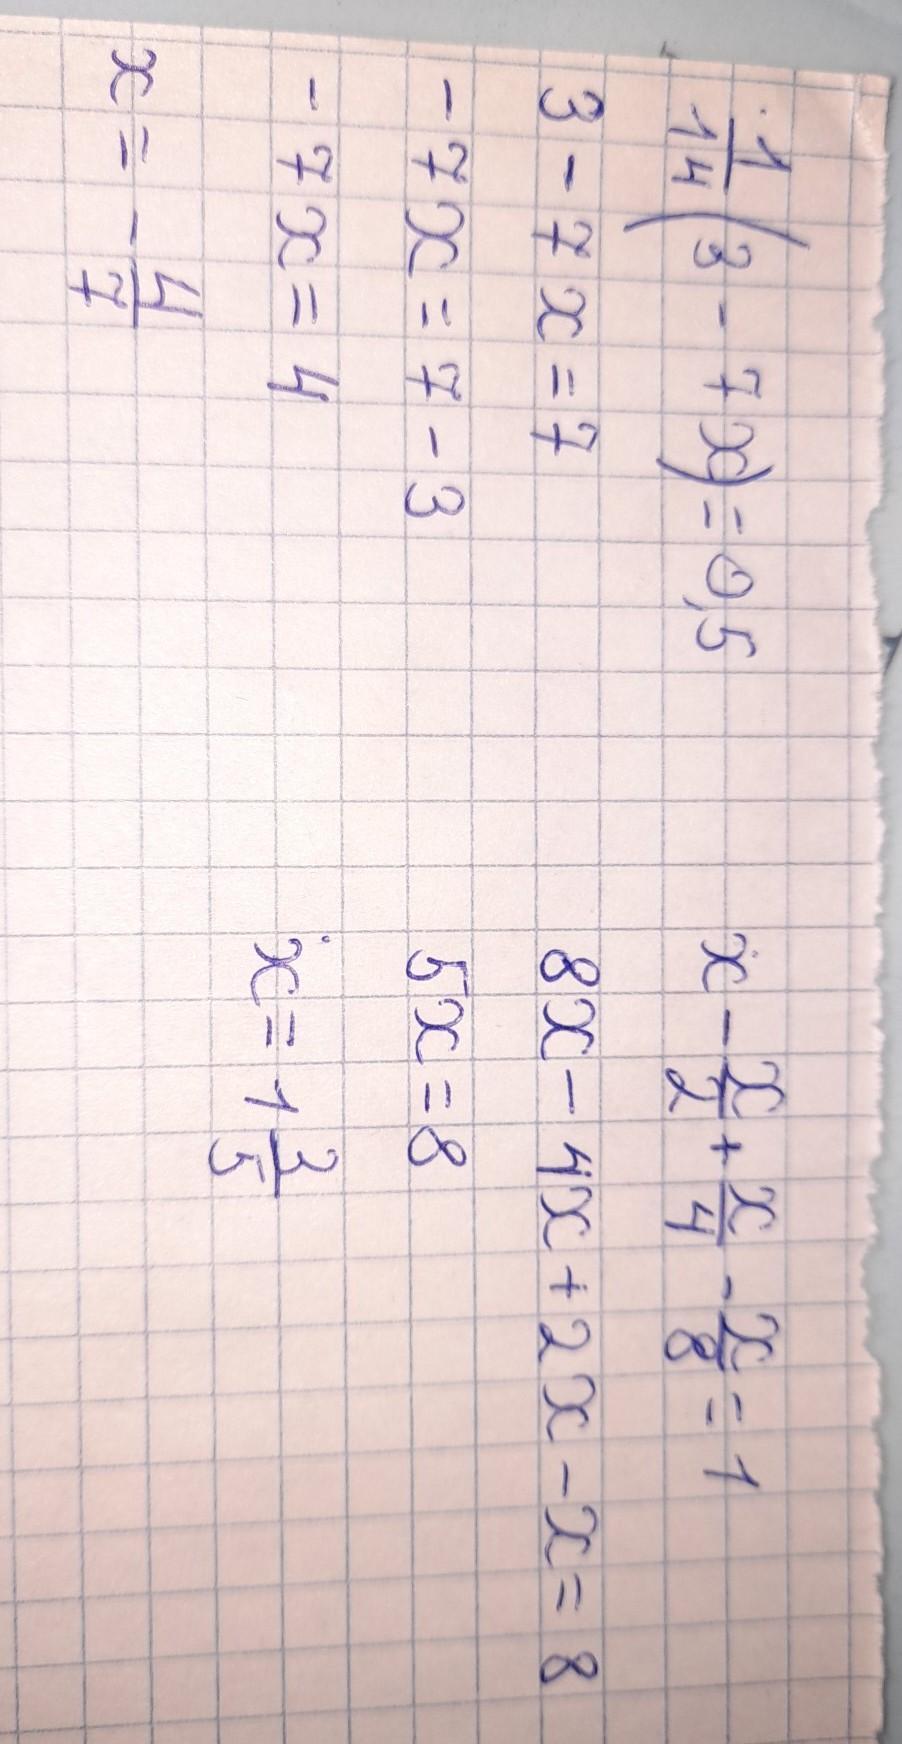 1/14 (3 - 7x) = 0,5
3 - 7x = 7
- 7x = 7 - 3
- 7x = 4
x = - 4/7
x - x/2 + x/4 - x/8 = 1
8x - 4x + 2x - x = 8
5x = 8
x = 1 3/5